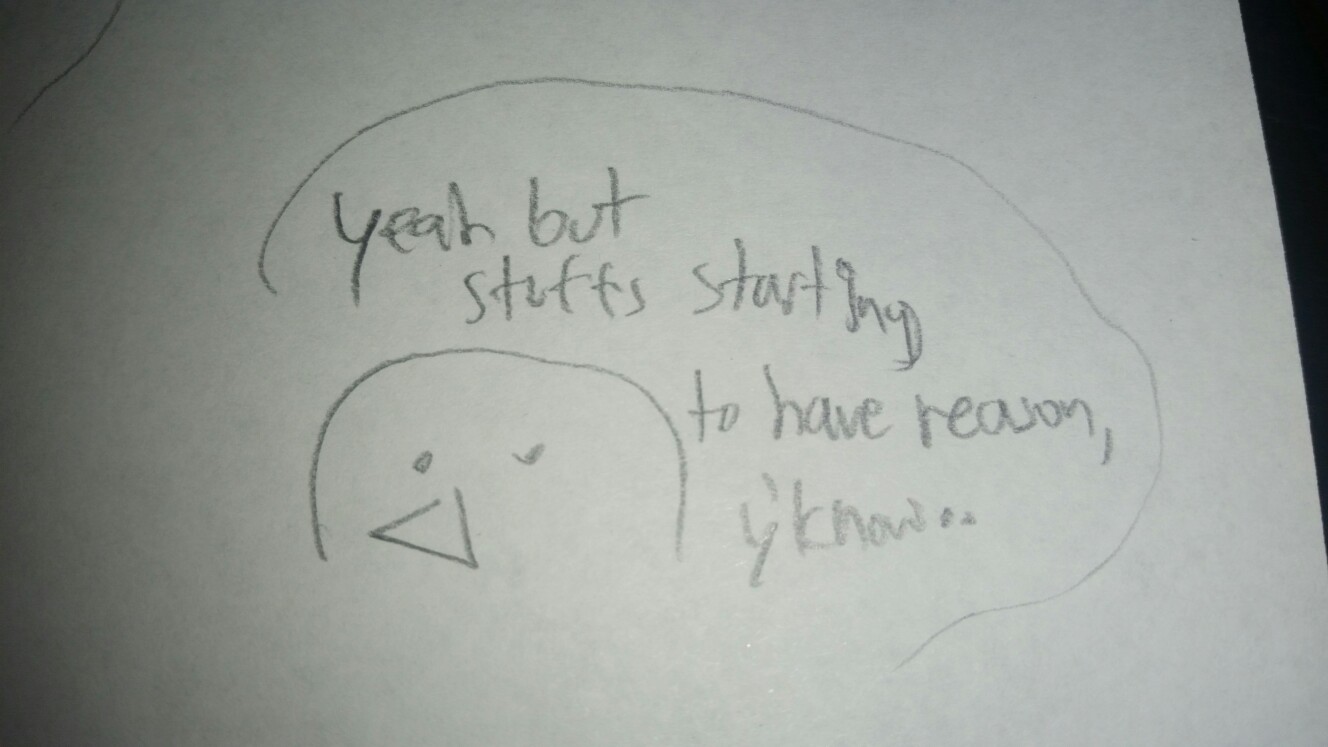 yeah but
stuffs starting
to have reason,
y'know..